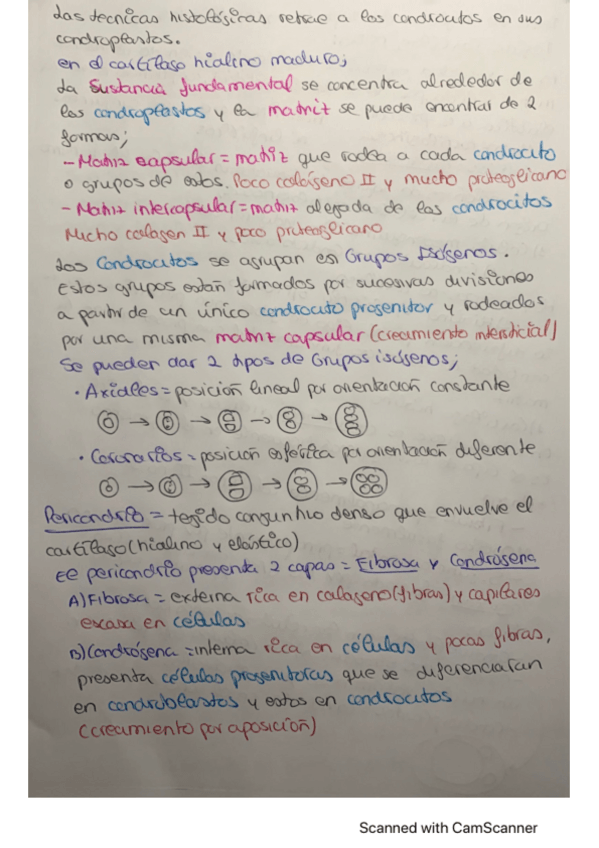 Las tecnicas histológicas retrae a los condrocitos en sus
condroplastos.
en el cartílago hialino maduro;
La Sustancia fundamental se concentra alrededor de
los condroplastos y la matriz se puede encontrar de 2
formas;
- Matriz capsular = matriz que rodea a cada condrocito
o grupos de estos. Poco colágeno II y mucho proteoglicano
- Matriz intercapsular = matriz alejada de los condrocitos
Mucho colagen II y poco proteoglicano
Los Condrocitos se agrupan en Grupos Isógenos.
Estos grupos están formados por sucesivas divisiones
a partir de un único condrocito progenitor y rodeados
por una misma matriz capsular (creamiento intersticial)
Se pueden dar 2 tipos de Grupos isógenos;
• Axiales = posición lineal por orientación constante
• Coronarios = posición esférica por orientación diferente
Pericondrio = tejido conjuntivo denso que envuelve el
cartílago (hialino y elástico)
EE pericondrio presenta 2 capas = Fibrosa y Condrógena
A) Fibrosa = externa rica en colageno (fibras) y capilares
escasa en células
B) Condrógena = interna rica en células y pocas fibras,
presenta células progenitoras que se diferenciaran
en condroblastos y estos en condrocitos
(creamiento por aposición)
Scanned with CamScanner